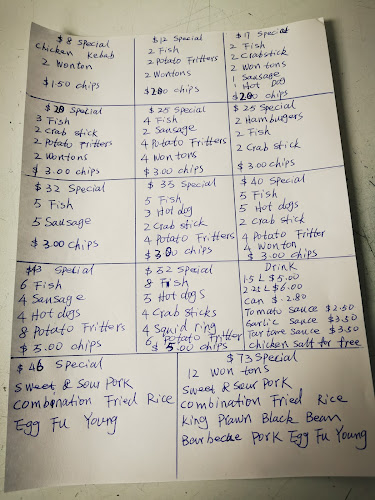 $8 Special
Chicken Kebab
2 Wonton
$1.50 chips
$12 Special
2 Fish
2 Potato Fritters
2 Wontons
$2.00 chips
$17 Special
2 Fish
2 Crabstick
2 Won tons
1 Sausage
1 Hot Dog
$2.00 chips
$20 Special
3 Fish
2 Crab stick
2 Potato Fritters
2 Wontons
$3.00 chips
$25 Special
4 Fish
2 Sausage
4 Potato Fritters
4 Wontons
$3.00 chips
$25 Special
2 Hamburgers
2 Fish
2 Crab stick
$3.00 chips
$32 Special
5 Fish
5 Sausage
$3.00 chips
$35 Special
5 Fish
3 Hot dogs
2 Crab stick
4 Potato Fritters
$3.00 chips
$40 Special
5 Fish
5 Hot dogs
2 Crab stick
4 Potato Fritter
4 Wonton
$3.00 chips
Special
6 Fish
4 Sausage
4 Hot dogs
8 Potato Fritters
$5.00 chips
$52 Special
8 Fish
5 Hot dogs
4 Crab Sticks
4 Squid ring
6 Potato Fritter
$5.00 chips
Drink
1.5 L $5.00
2.25 L $6.00
Can $2.80
Tomato Sauce $2.50
Garlic Sauce $3.50
Tartare Sauce $3.50
Chicken Salt for free
$46 Special
Sweet & Sour Pork
Combination Fried Rice
Egg Fu Young
$73 Special
12 Won tons
Sweet & Sour Pork
Combination Fried Rice
King Prawn Black Bean
Barbecue Pork Egg Fu Young